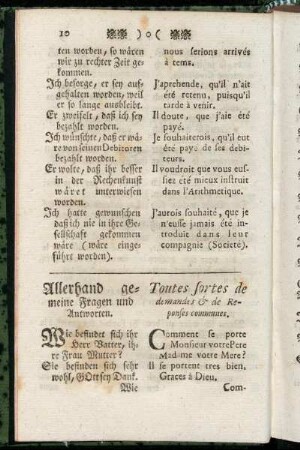 10 )o(
ten worden, so wären
wir zu rechter Zeit ge-
kommen.
Ich besorge, er sey auf-
gehalten worden, weil
er so lange ausbleibt.
Er zweifelt, daß ich sey
bezahlt worden.
Ich wünschte, daß er wä-
re von seinen Debitoren
bezahlt worden.
Er wolte, daß ihr besser
in der Rechenkunst
wäret unterwiesen
worden.
Ich hatte gewunschen
daß ich nie in ihre Ge-
sellschaft gekommen
wäre (wäre einge-
führt worden).
nous serions arrivés
à tems.
J'aprehende, qu'il n'ait
été retenu, puisqu'il
tarde à venir.
Il doute, que j'ait été
payé.
Je souhaiterois, qu'il eut
été payé de ses debi-
teurs.
Il voudroit que vous eus-
siez été mieux instruit
dans l'Arithmetique.
J'aurois souhaité, que je
n'eusse jamais été in-
troduit dans leur
compagnie (Societé).
Allerhand ge-
meine Fragen und
Antworten.
Wie befindet sich ihr
Herr Vatter, ih-
re Frau Mutter?
Sie befinden sich sehr
wohl, GOtt sey Dank.
Wie
Toutes sortes de
demandes & de Re-
ponses communes.
Comment se porte
Monsieur votre Pere
Madame votre Mere?
Il se portent tres bien,
Graces à Dieu.
Com-